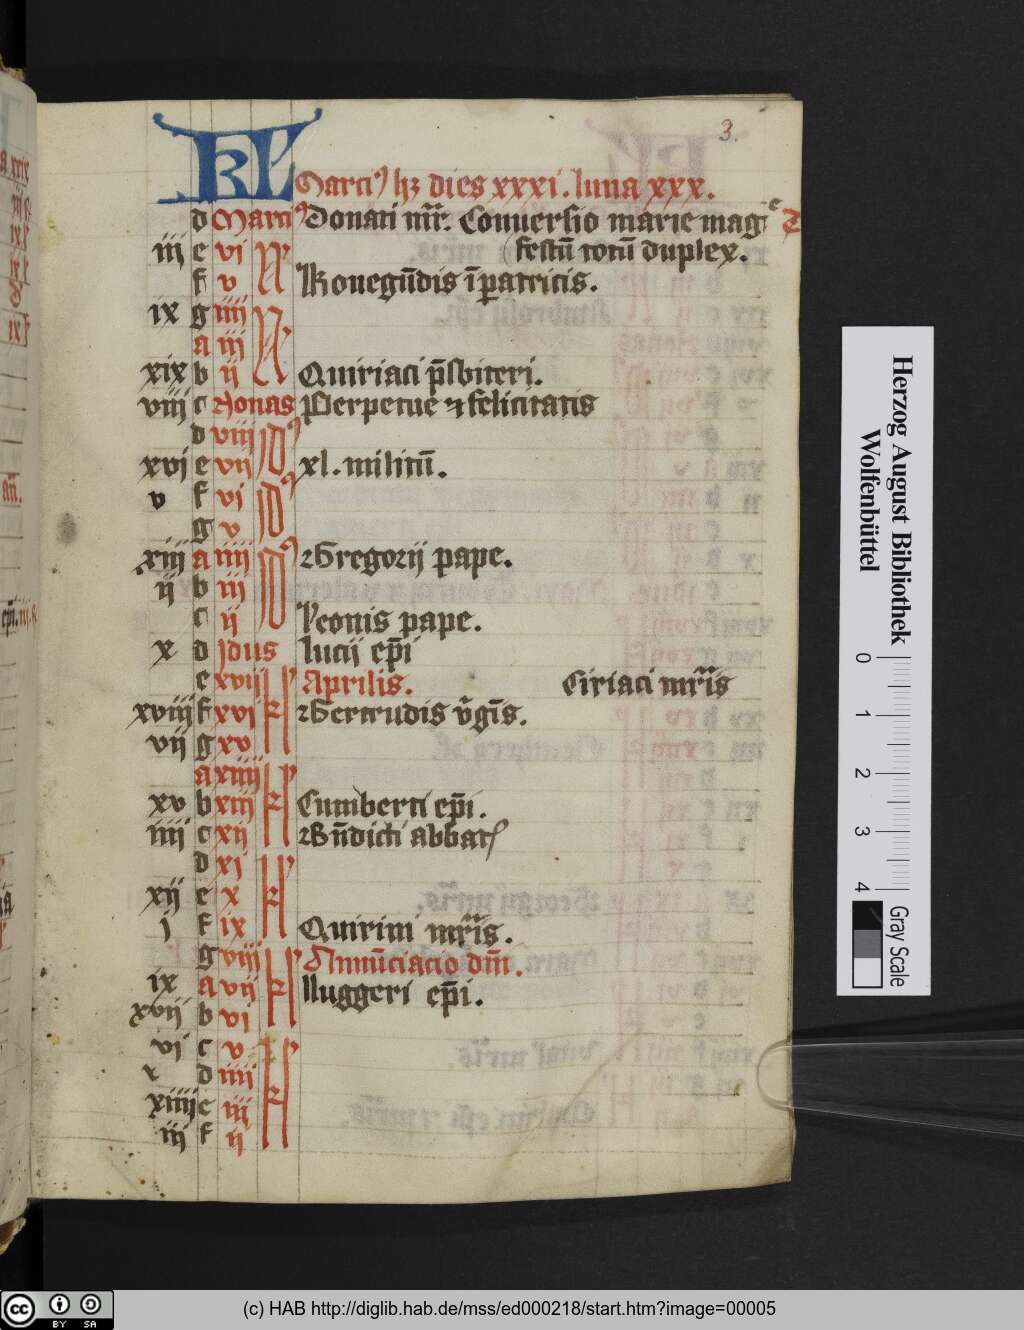 3.
KL Marciꝰ hꝫ dies xxxi. luna xxx.
d Marciꝰ Donati mr̄. Conuersio marie mag e T
iij e vi N festū totū duplex.
f v Konegūdis īꝑatricis.
ix g iiij N
a iij
xix b ij Quiriaci p̄sbiteri.
viij c Nonas Perpetue ⁊ felicitatis
d viij Idꝰ
xvj e vij xl. militū.
v f vj Idꝰ
g v
xiij a iiij Idꝰ Gregorij pape.
ij b iij
c ij Leonis pape.
x d Idus lucij ep̄i
e xvij kl Aprilis. Ciriaci mr̄is
xviij f xvj Gertrudis v̄gīs.
vij g xv
a xiiij kl
xv b xiij Cumberti ep̄i.
iiij c xij Bn̄dicti abbatꝭ
d xj kl
xij e x
j f ix Quirini mr̄is.
g viij kl Annūciacio dm̄.
ix a vij lluggeri ep̄i.
xvij b vj
vi c v kl
d iiij
xiiij e iij
iij f ij
Herzog August Bibliothek
Wolfenbüttel
0 1 2 3 4
Gray Scale
cc BY SA
(c) HAB http://diglib.hab.de/mss/ed000218/start.htm?image=00005